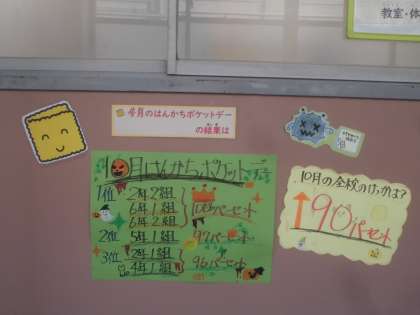 教室・体
今月のはんかちポケットデー
の結果は
10月はんかちポケットデー
1位 2年2組
6年1組
6年2組
100パーセント
2位 5年1組 97パーセント
3位 2年1組
4年1組
96パーセント
10月の全校のけっかは?
↑90パーセント